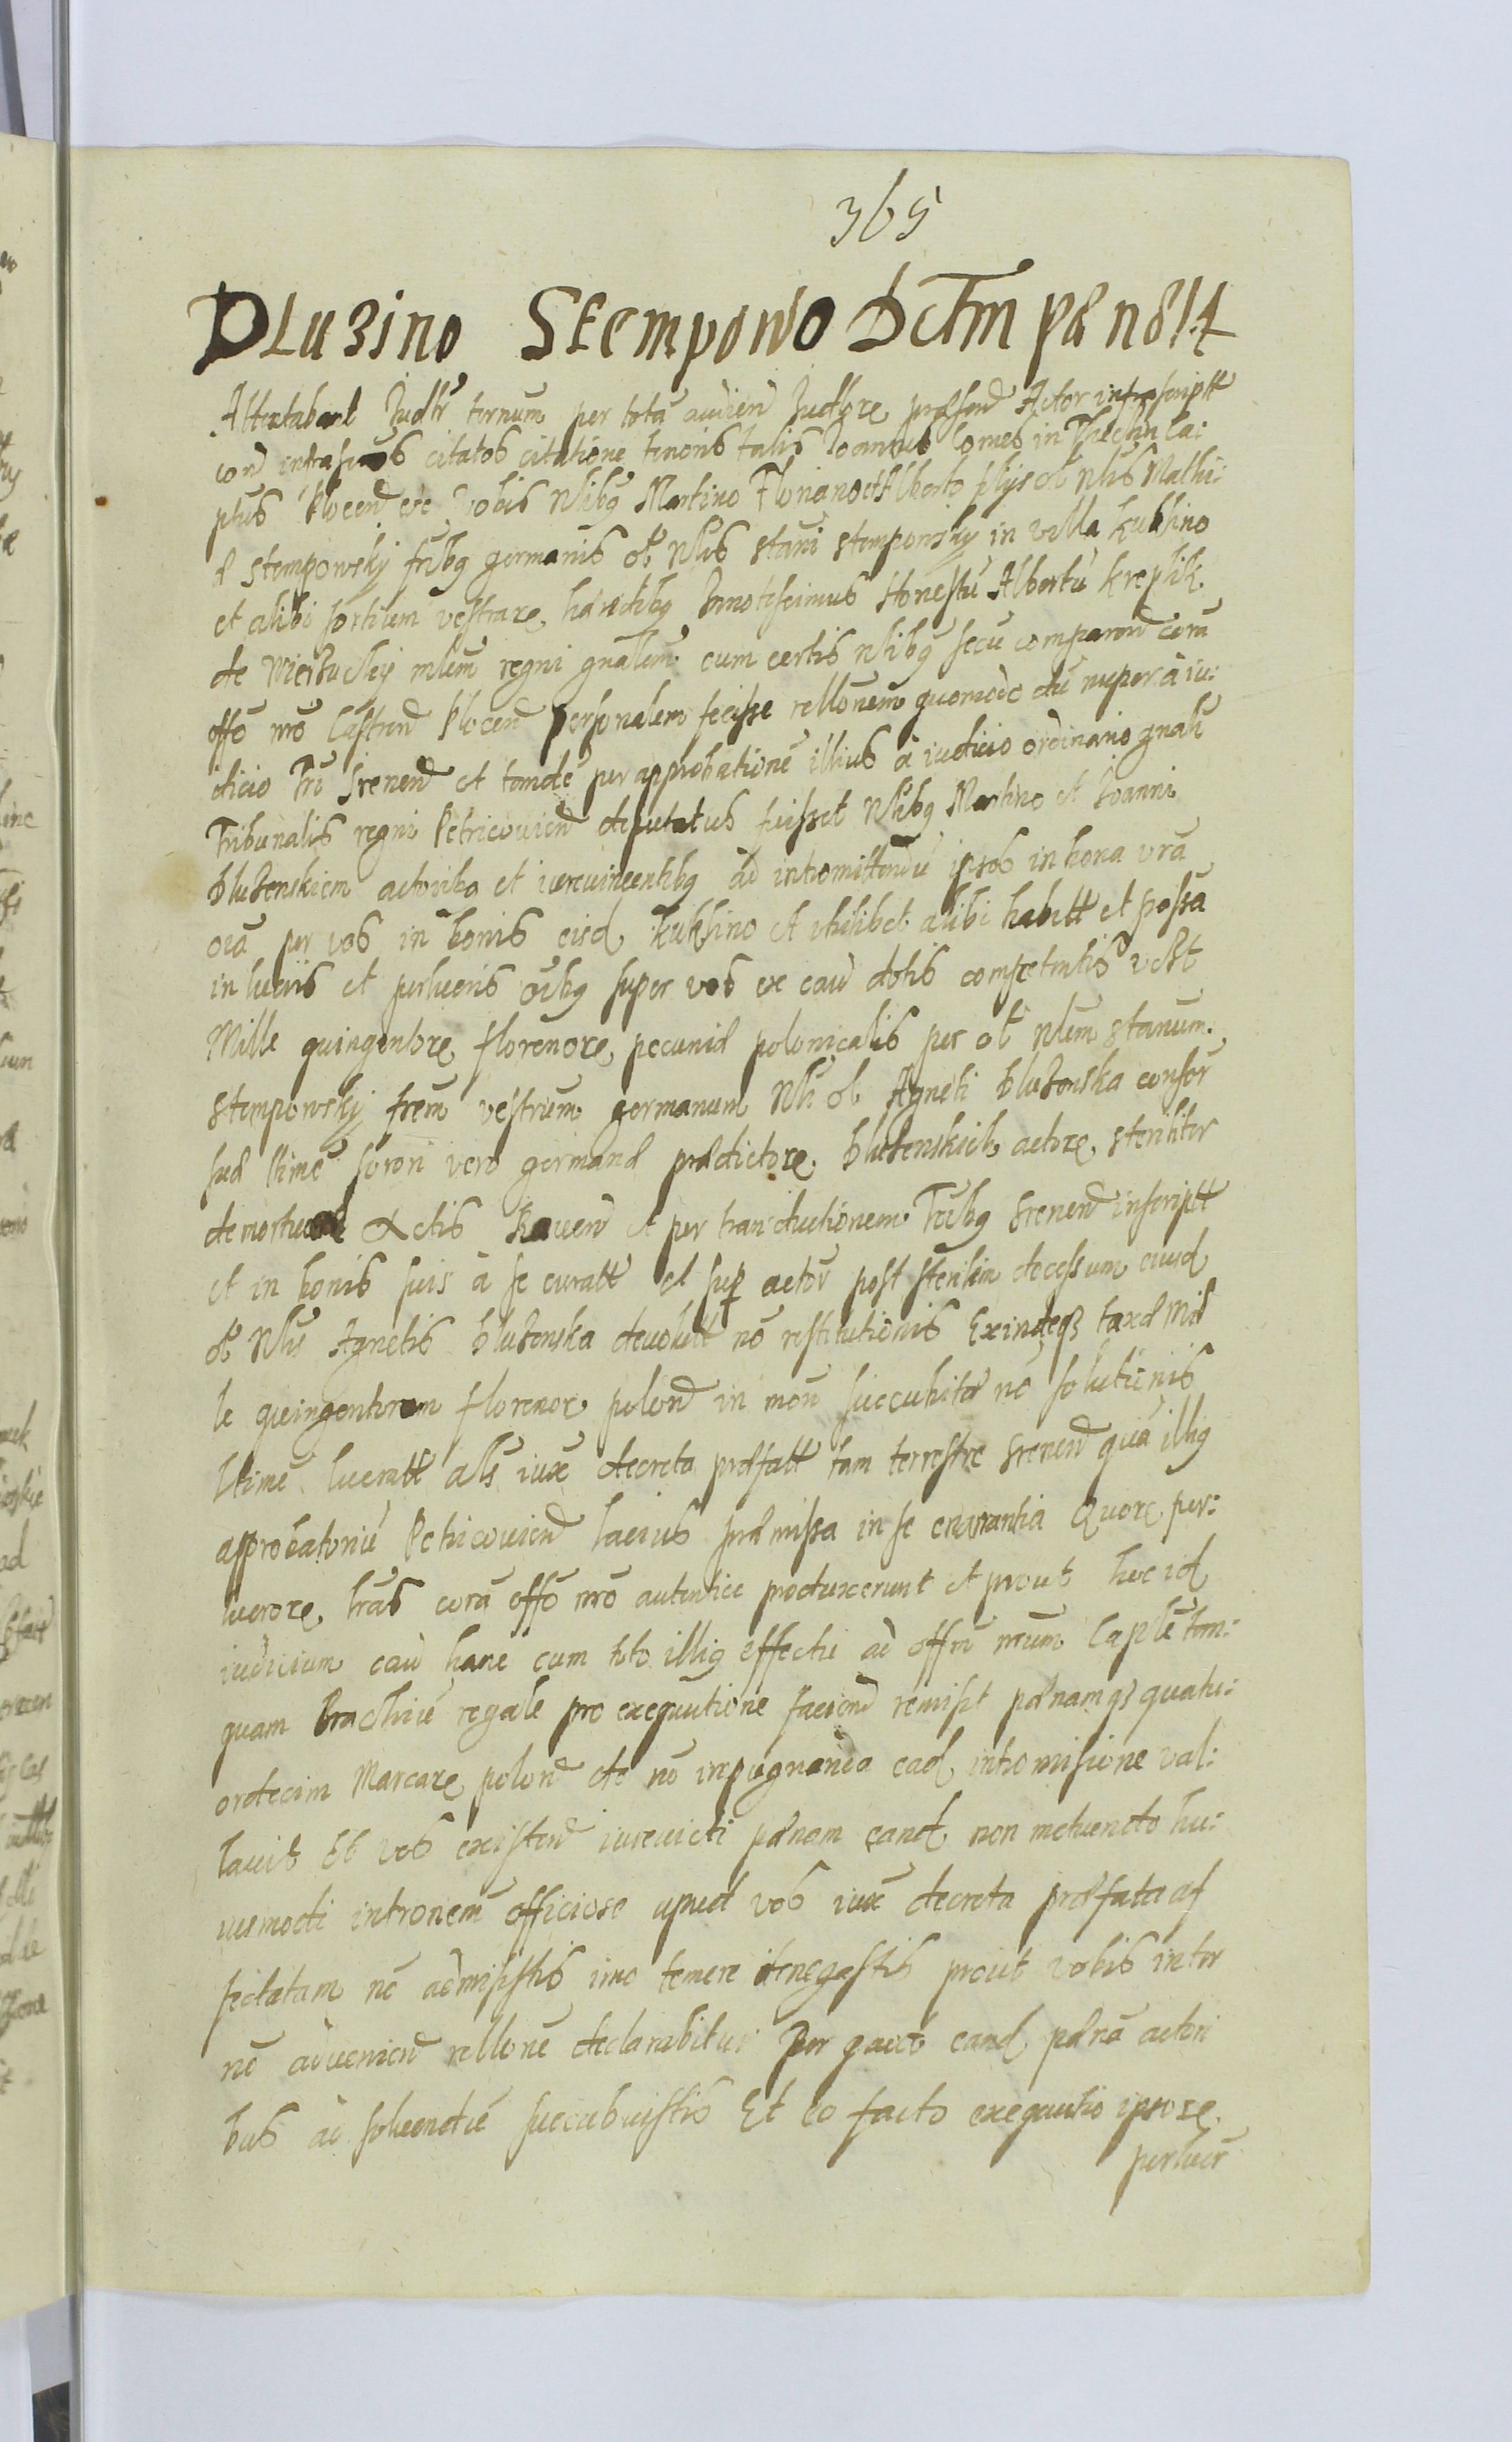 365
Dluzino Stempowo Dctm pænale 14
Attentabant Judlr ternum per totā audien Judlore præsend Actor infrascriptt
con infrascrōs citatos citatione tenoris talis Joannes Comes in Thechin Ca:
ptus Plocen etc Vobis Nlibg Martino Floriano et Alberto filijs ol Nlis Mathi:
æ Stempowskij fribg germanis ol Nlis Stani Stempowsky in villa kuklino
et alibi sortium vestrare hæredibg Innotescimus Honestū Albertū kreplik
de Mierzuchy mlem regni gnalem cum certis nlibg secū comparen corā
offo nrō Castren Plocen personalem fecisse rellonem quomodo dū nuper à iu:
dicio Tri Srenen et tandē per approbationē illius à iudicio ordinario gnali
Tribunalis regni Petricovien deputatus fuisset Nlibg Martino et Joanni
Dluzenskiem actoribs et iurevincentibg ad intromittendū ipsos in bona vrā
oiā per vos in bonis eisd kuklino et ubilibet alibi habitt et possa
in lucris et perlucris oibg super vos ex cau dotis competentis vestr
Mille quingentore florenore pecuniæ polonicalis per ol Nlem Stanum
Stempowskij frem vestrum germanum Nli ol Agneti Dluzenska consor
suæ ltimē sorori vero germanæ prædictore Dluzenskich actore steriliter
demortuæ Actis Raven et per transductionem Tribg Srenen inscriptt
et in bonis suis à se curatt et sup actor post sterilem decessum eiusd
ol Nlis Agnetis Dluzenska devolutt nō restitutionis Exindeqz taxæ Mil
le quingentorum florenor polon in mon succubitæ nō solutionis
ltimē lucratt als iux decreta præfatt tam terrestre Srenen quā illig
approbatoriū Petricovien lacius præmissa in se enarrantia Quore per:
lucrore lrās corā offo nrō autentice produxerunt et prout hoc id
iudicium cau hanc cum toto illig effectu ad offm nrum Caplē tan:
quam Brachiū regale pro exequutione facien remisit pænamqz quatu:
ordecim Marcare polon de nō impugnanda ead intromisione val:
lavit Et vos existen iurevicti pænam eand non metuendo hu:
iusmodi intronem officiose apud vos iux decreta præfata af
fectatam nō admisistis imo temere denegastis prout vobis inter
nē advenien rellonē declarabitur Per quod eand pænā actori
bus ad solvendū succubuistis Et eo facto exequutio ipsore
perlucr